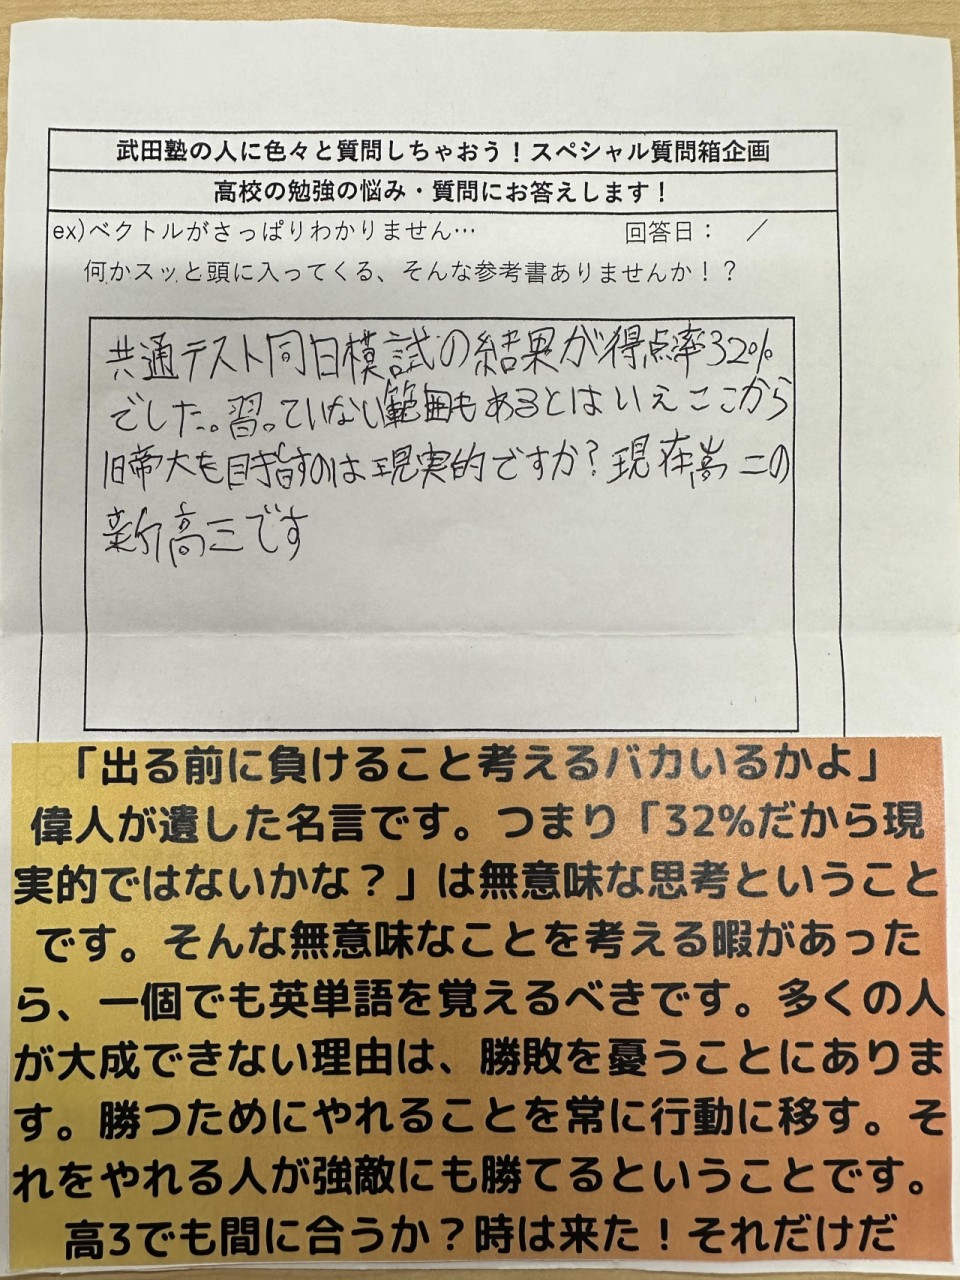 武田塾の人に色々と質問しちゃおう！スペシャル質問箱企画
高校の勉強の悩み・質問にお答えします！
ex)ベクトルがさっぱりわかりません… 回答日： ／
何かスッと頭に入ってくる、そんな参考書ありませんか！？
共通テスト同日模試の結果が得点率32%
でした。習っていない範囲もあるとはいえここから
旧帝大を目指すのは現実的ですか？現在高二の
新高三です
「出る前に負けること考えるバカいるかよ」
偉人が遺した名言です。つまり「32%だから現
実的ではないかな？」は無意味な思考ということ
です。そんな無意味なことを考える暇があった
ら、一個でも英単語を覚えるべきです。多くの人
が大成できない理由は、勝敗を憂うことにありま
す。勝つためにやれることを常に行動に移す。そ
れをやれる人が強敵にも勝てるということです。
高3でも間に合うか？時は来た！それだけだ